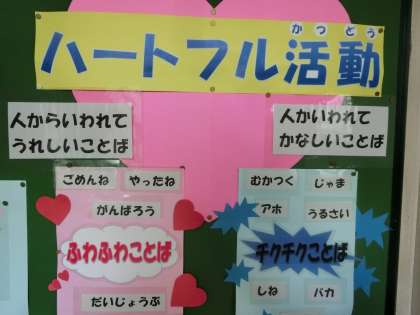 かつどう
ハートフル活動
人からいわれて
うれしいことば
人からいわれて
かなしいことば
ごめんね
やったね
がんばろう
ふわふわことば
だいじょうぶ
むかつく
じゃま
アホ
うるさい
チクチクことば
しね
バカ